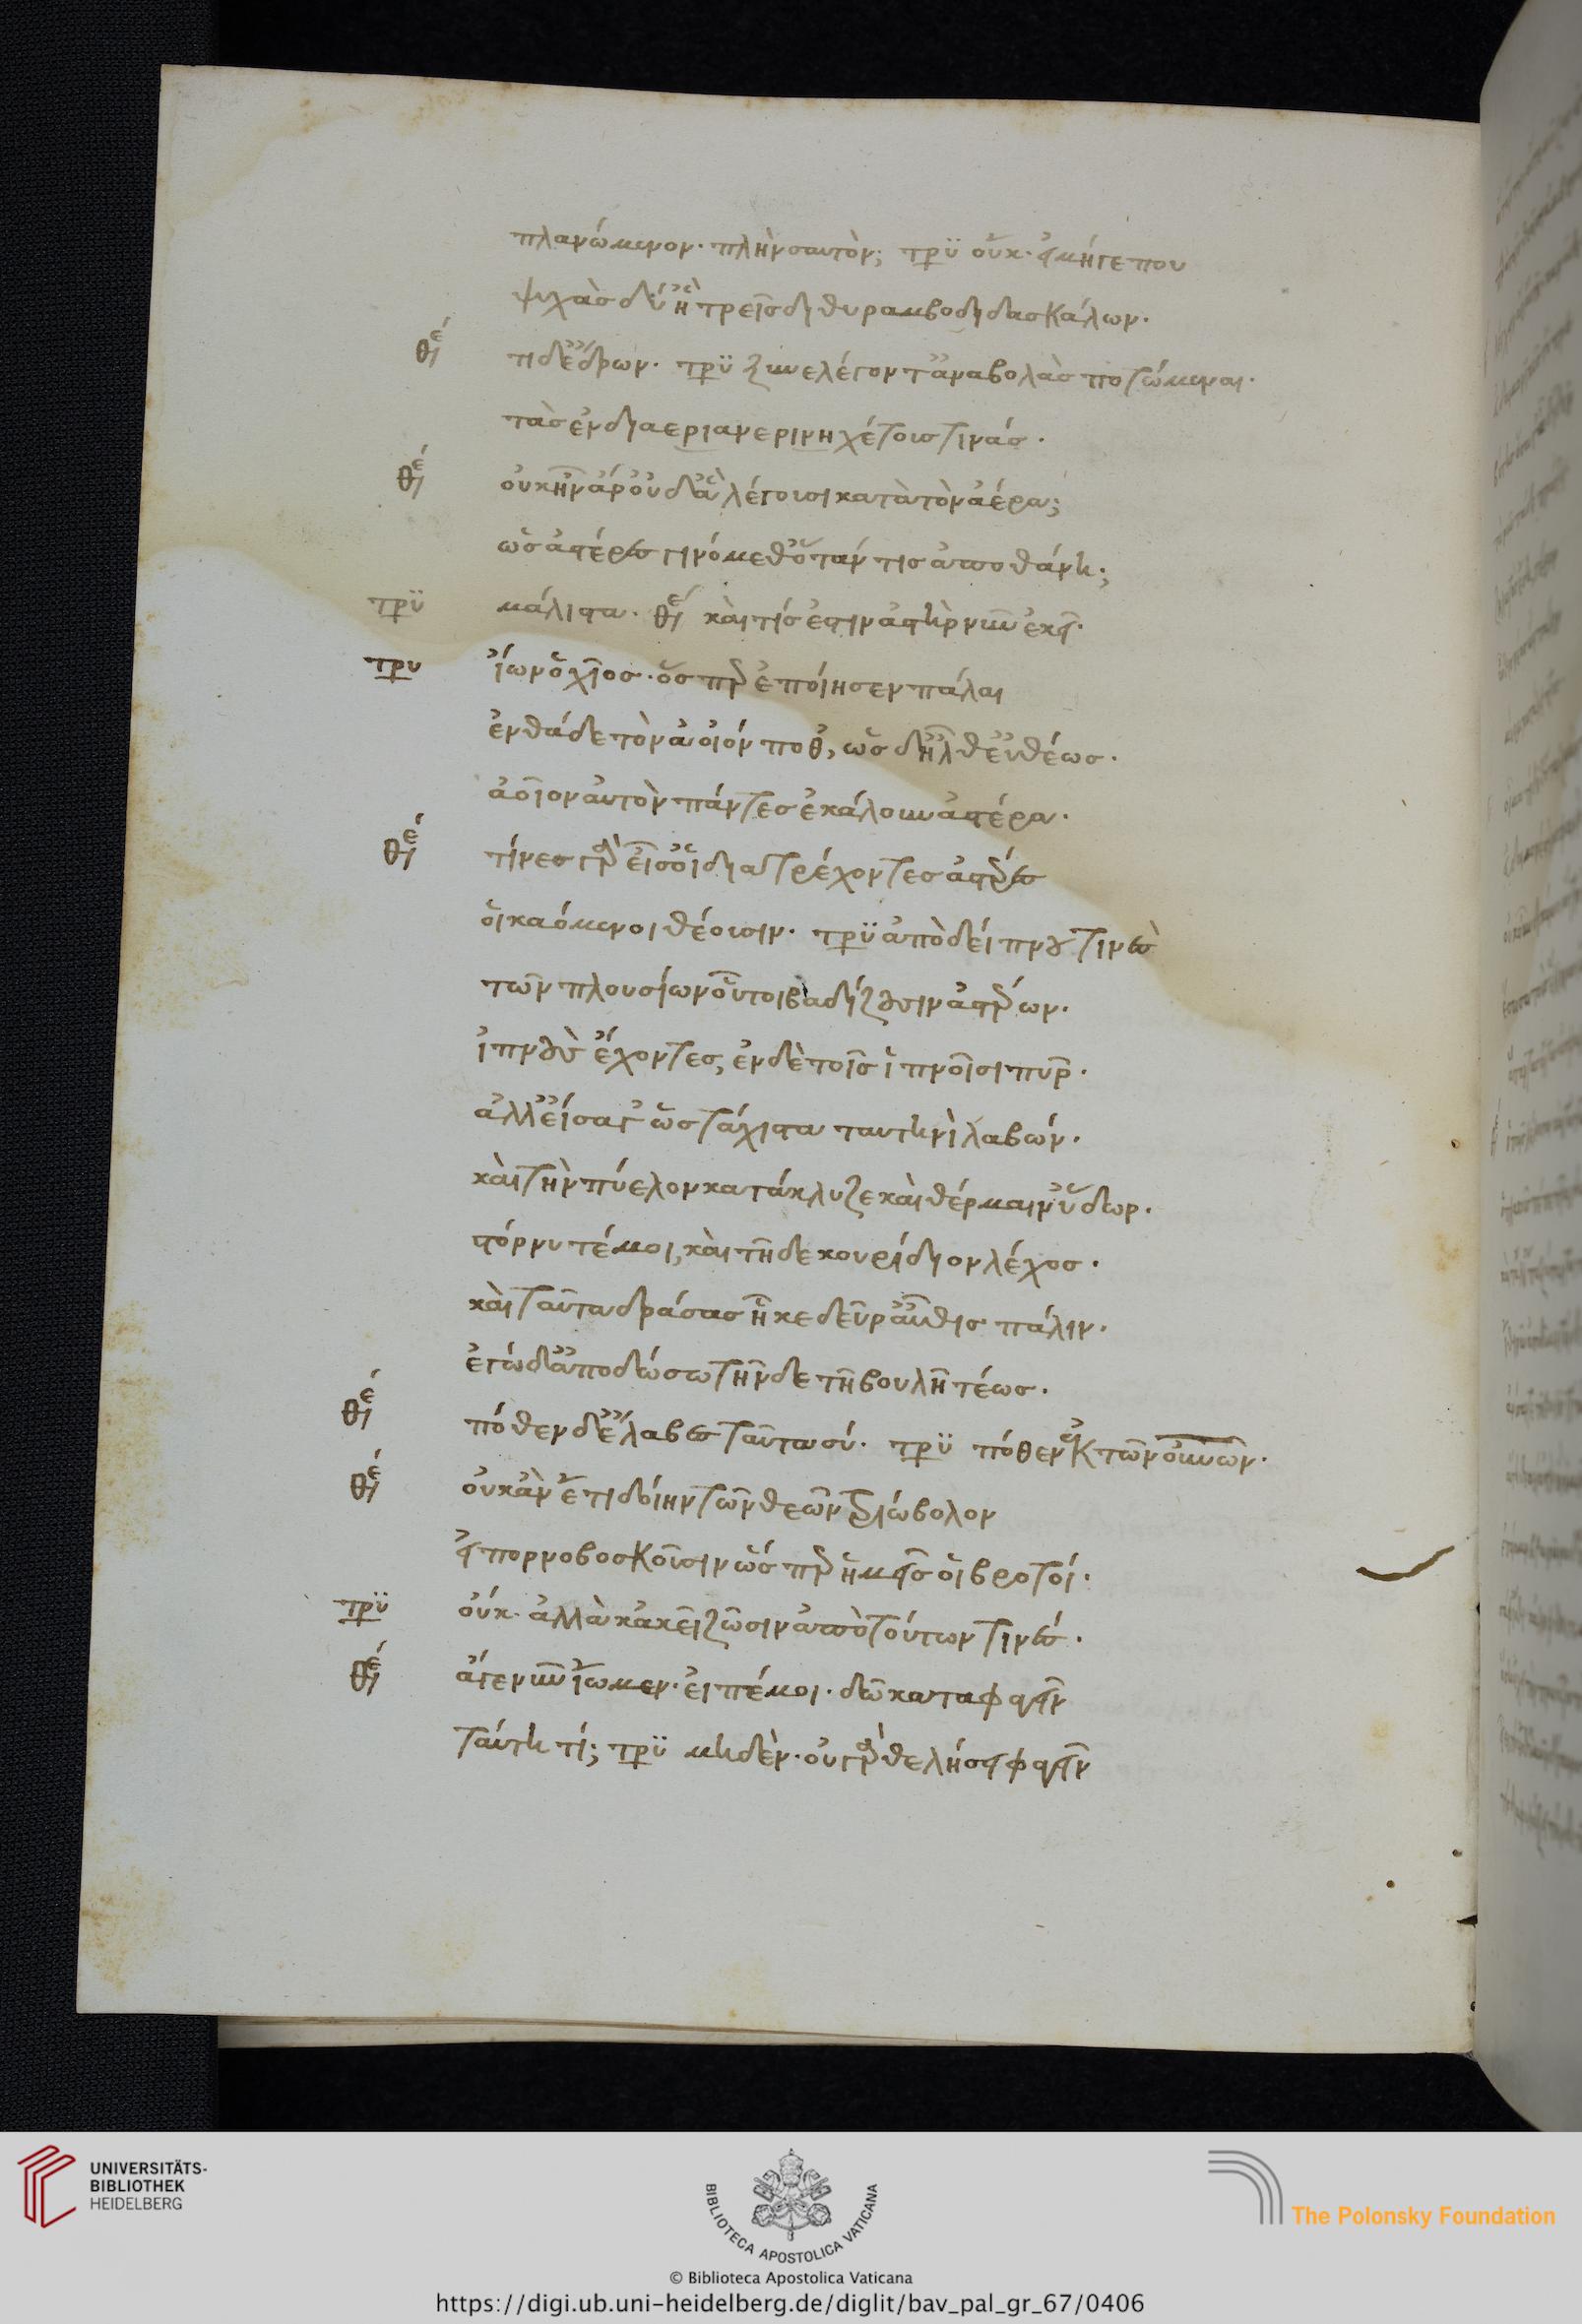 πλανώμενον· πλὴν σαυτόν; τρυ οὔκ· εἰ μήγε που
ψυχὰς δύ ἢ τρεῖς διθυραμβοδιδασκάλων·
θε τί δ' ἔδρων· τρυ ξυνελέγοντ' ἀναβολὰς ποτώμεναι·
τὰς ἐνδιαεριανερινηχέτους τινάς·
θε οὐκ ἦν ἄρ' οὐδ' ἃ λέγουσι κατὰ τὸν ἀέρα;
ὡς ἀστέρες γινόμεθ' ὅταν τις ἀποθάνη;
τρυ μάλιστα· θε καὶ τίς ἐστιν ἀστὴρ νῦν ἐκεῖ·
τρυ ἴων ὁ χῖος· ὅσπερ ἐποίησεν πάλαι
ἐνθάδε τὸν ἀοιόν ποθ', ὡς δ' ἦλθ' εὐθέως·
ἀοῖον αὐτὸν πάντες ἐκάλουν ἀστέρα·
θε τίνες γάρ εἰσ' οἱ διατρέχοντες ἀστέρες
οἳ καόμενοι θέουσιν· τρυ ἀπὸ δείπνου τινὲς
τῶν πλουσίων οὗτοι βαδίζουσιν ἀστέρων·
ἰπνοὺς ἔχοντες, ἐν δὲ τοῖς ἰπνοῖσι πῦρ·
ἀλλ' εἴσαγ' ὡς τάχιστα ταυτηνὶ λαβών·
καὶ τὴν πύελον κατάκλυζε καὶ θέρμαιν' ὕδωρ·
στόρνυ τέ μοι, καὶ τῆδε κουρίδιον λέχος·
καὶ ταῦτα δράσας ἧκε δεῦρ' αὖθις πάλιν·
ἐγὼ δ' ἀποδώσω τήνδε τῆ βουλῆ τέως·
θε πόθεν δ' ἔλαβες ταῦτα σύ· τρυ πόθεν ἐκ τῶν οὐνῶν·
θε οὐκ ἂν ἔτι δοίην τῶν θεῶν τριώβολον
εἰ πορνοβοσκοῦσιν ὥσπερ ἡμεῖς οἱ βροτοί·
τρυ οὔκ· ἀλλὰ κἀκεῖ ζῶσιν ἀπὸ τούτων τινές·
θε ἄγε νῦν ἴωμεν· εἰπέ μοι· δῶ καταφαγεῖν
ταύτη τί; τρυ μηδέν· οὐ γὰρ ἐθελήσει φαγεῖν
UNIVERSITÄTS-
BIBLIOTHEK
HEIDELBERG
BIBLIOTECA APOSTOLICA VATICANA
The Polonsky Foundation
© Biblioteca Apostolica Vaticana
https://digi.ub.uni-heidelberg.de/diglit/bav_pal_gr_67/0406